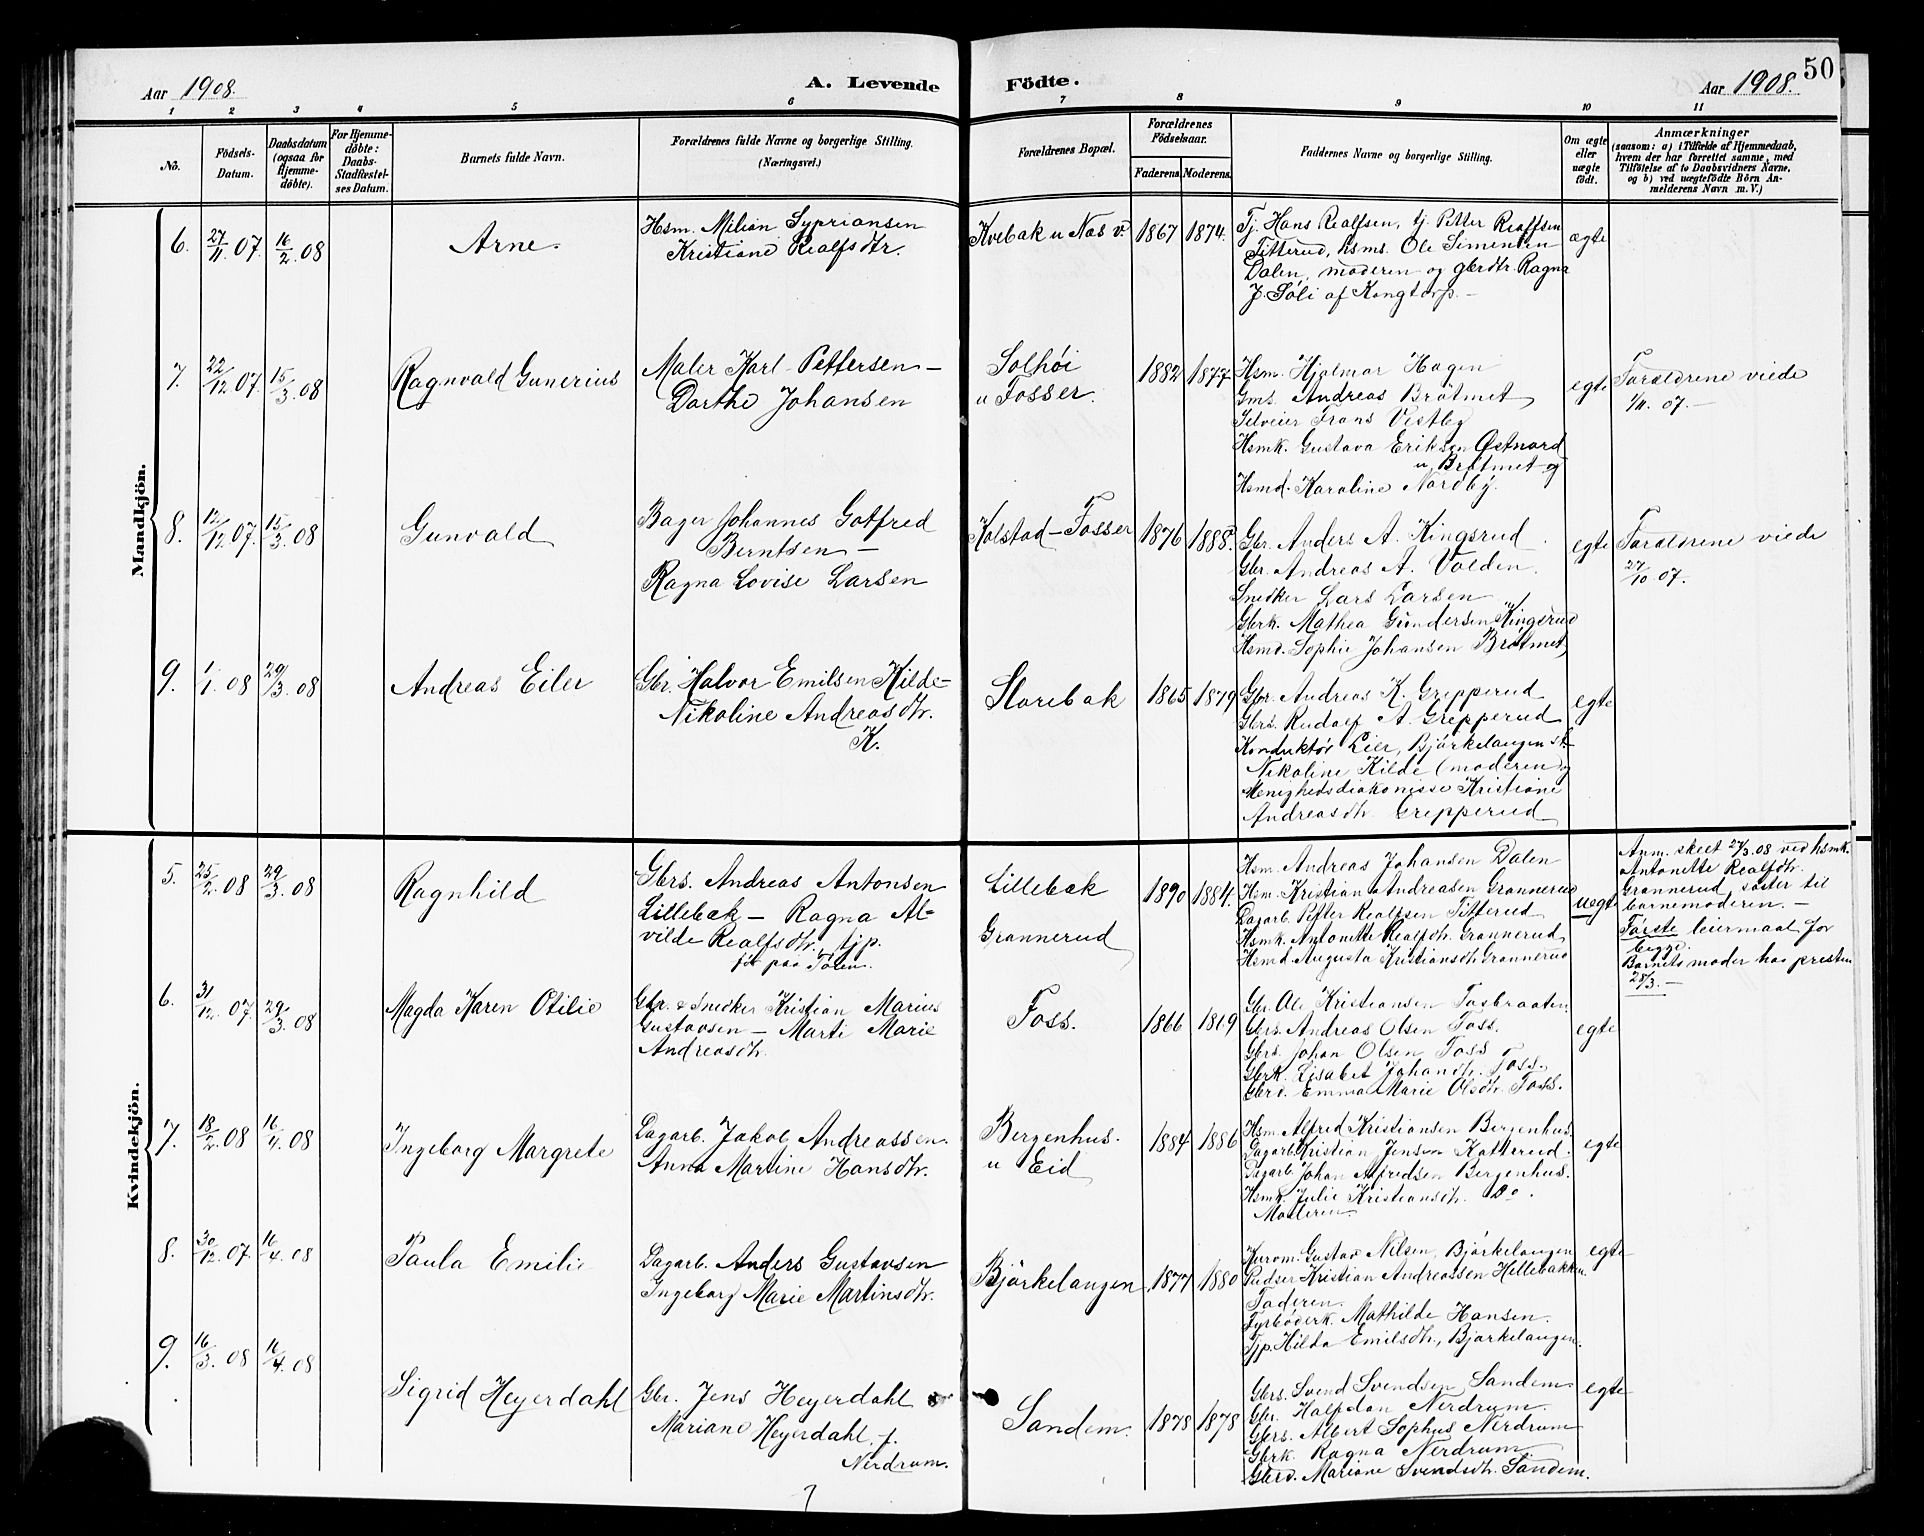 50
Aar 1908.
A. Levende
Födte.
Aar 1908.
1 2 3 4 5 6 7 8 9 10 11
No.
Födsels-
Datum.
Daabsdatum
(ogsaa for
Hjemme-
döbte).
For Hjemme-
döbte:
Daabs-
Stadfæstel-
ses Datum.
Barnets fulde Navn.
Forældrenes fulde Navne og borgerlige Stilling.
(Næringsvei.)
Forældrenes Bopæl.
Forældrenes
Födselsaar.
Faderens.
Moderens.
Faddernes Navne og borgerlige Stilling.
Om ægte
eller
uægte
födt.
Anmærkninger
(saasom: a) i Tilfælde af Hjemmedaab,
hvem der har forrettet samme, med
Tilföielse af to Daabsvidners Navne,
og b) ved uægtefödte Börn An-
melderens Navn m. V.)
Mandkjön.
6. 27/11 07. 16/2 08
Arne.
Hsm. Milian Sypriansen
Kristiane Realfsdtr.
Kvebak u Næs v.
1867 1874.
Tj. Hans Realfsen, tj. Petter Realfsen
Titterud, hsms. Ole Simensen
Dalen, moderen og gbrdtr. Ragna
J. Söli af Kongtorp. -
ægte
7. 22/12 07. 15/3 08
Ragnvald Gunerius
Maler Karl Pettersen -
Dorthe Johansen
Solhöi
u Fosser.
1882 1877
Hsm. Hjalmar Hagen
Gms. Andreas Bråtmet
Selveier Frans Vestby
Hsmk. Gustava Eriksen Østnord
u Bråtmet og
Hsmd. Karoline Nordby.
egte
Forældrene viede
1/11. 07. -
8. 12/12 07. 15/3 08
Gunvald
Bager Johannes Gotfred
Berntsen -
Ragna Lovise Larsen
Kolstad - Fosser
1876 1888.
Gbr. Anders A. Kingsrud
Gbr. Andreas A. Valden.
Snedker Lars Larsen
Gbrk. Mathea Gundersen Kingsrud
Hsmd. Sophie Johansen Bråtmet,
egte
Forældrene viede
27/10. 07.
9. 1/1. 08 29/3. 08
Andreas Eiler
Gbr. Halvor Emilsen Kilde -
Nikoline Andreasdtr.
K.
Starebak
1865 1879
Gbr. Andreas K. Grepperud
Gbrs. Rudolf A. Grepperud
Konduktör Eier, Björkelangen st.
Nikoline Kilde (moderen) og
Menighedsdiakonisse Kristiane
Andreasdtr. Grepperud
egte
Kvindekjön.
5. 25/2. 08 29/3. 08
Ragnhild
Gbrs. Andreas Antonsen
Lillebak - Ragna Al-
vilde Realfsdtr., tjp.
för paa Toien.
Lillebak
Grannerud
1890 1884.
Hsm. Andreas Johansen Dalen
Hsm. Kristian Andreasen Grannerud
Dagarb. Petter Realfsen Titterud
Hsmk. Antonette Realfsdtr. Grannerud
Hsmd. Augusta Kristiansdtr. Grannerud
uegte
Anm. skeet 27/3.08 ved hsmk.
Antonette Realfsdtr.
Grannerud, söster til
barnemoderen. -
Förste leiermaal for
begge.
Barnets moder hos presten
28/3. -
6. 31/12. 07 29/3. 08
Magda Karen Otilie
Gbr. & Snedker Kristian Marius
Gustavsen - Marti Marie
Andreasdtr.
Foss.
1866 1869
Gbr. Ole Kristiansen Fosbraaten.
Gbrs. Andreas Olsen Foss.
Gbrs. Johan Olsen Foss
Gbrk. Lisabet Johandtr. Foss.
Gbrd. Emma Marie Olsdtr. Foss.
egte
7. 18/2. 08 16/4. 08
Ingeborg Margrete
Dagarb. Jakob Andreassen.
Anna Martine Hansdtr.
Bergenhus.
u Eid
1884 1886
Hsm. Alfred Kristiansen Bergenhus.
Dagarb. Kristian Jensen Katterud.
Dagarb. Johan Alfredsen Bergenhus.
Hsmk. Julie Kristiansdtr. Do.
Moderen.
egte
8. 30/12. 07. 16/4. 08
Paula Emilie
Dagarb. Anders Gustavsen
Ingeborg Marie Martinsdtr.
Björkelangen
1877 1880
Gustav Nilsen, Björkelangen
Pudser Kristian Andreassen Hellebakken.
Faderen.
Fyrböderk. Mathilde Hansen.
Tjp. Hilda Emilsdtr., Bjørkelangen.
egte
9. 16/3. 08 16/4. 08
Sigrid Heyerdahl
Gbr. Jens Heyerdahl
Mariane Heyerdahl f.
Nerdrum.
Sandem.
1878 1878
Gbrs. Svend Svendsen Sandem.
Gbr. Halfdan Nerdrum.
Gbrs. Albert Sophus Nerdrum
Gbrk. Ragna Nerdrum
Gbrd. Mariane Svendsdtr. Sandem.
egte